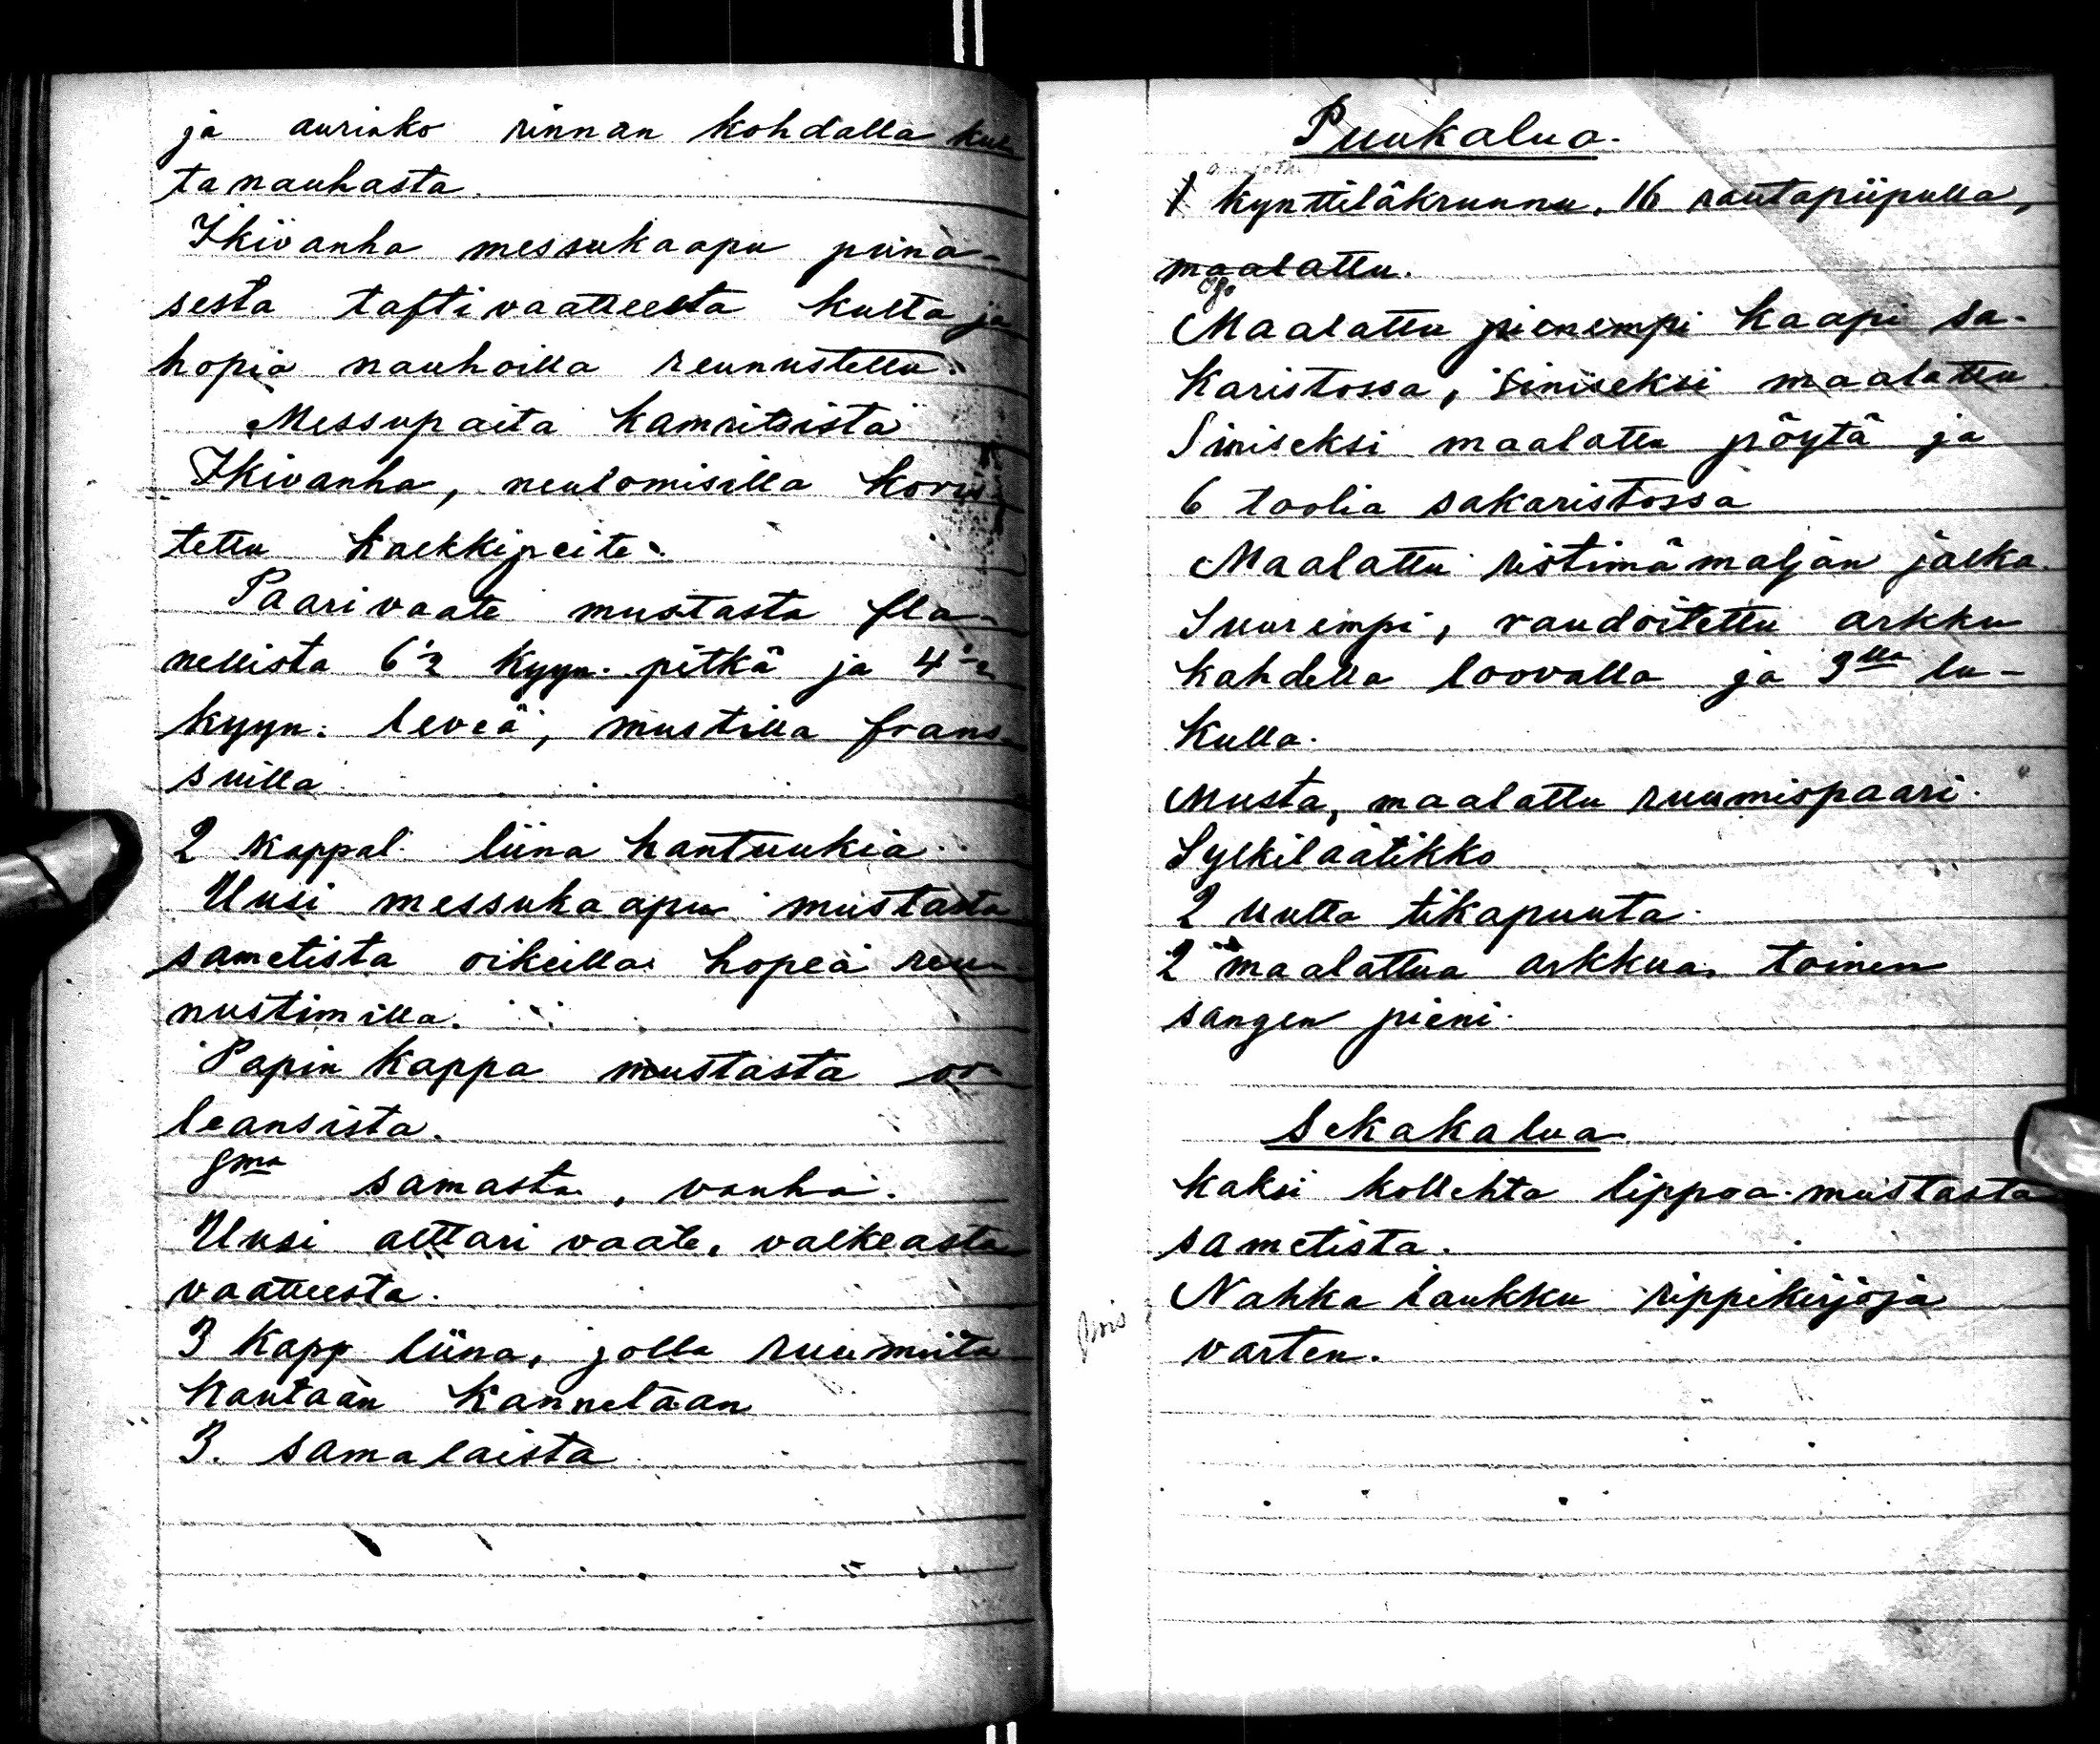 ja aurinko rinnan kohdalla kul
tanauhasta.
Ikivanha messukaapu puna-
sesta taftivaatteesta kulta ja
hopia nauhoilla reunustettu.
Messupaita kamritsista
Ikivanha, neulomisilla koris
tettu kalkkipeite.
Paarivaate mustasta fla-
nellista 6 1/2 kyyn. pitkä ja 4 1/2
kyyn. leveä, mustilla frans-
suilla
2 kappal. liina hantuukia.
Uusi messukaapu mustasta
sametista oikeilla hopea reu-
nustimilla.
Papin kappa mustasta or-
leansista.
samasta, vanha.
Uusi alttari vaate, valkeasta
vaatteesta.
3 kapp liina, jolla ruumiita
hautaan kannetaan
3. samalaista
Puukalua.
1 kynttiläkruunu, 16 rautapiipulla,
maalattu.
Maalattu pienempi kaapi sa-
karistossa, siniseksi maalattu.
Siniseksi maalattu pöytä ja
6 toolia sakaristossa
Maalattu ristimämaljan jalka.
Suurempi, raudoitettu arkku
kahdella loovalla ja 3lla lu-
kulla.
Musta, maalattu ruumispaari.
Sylkilaatikko
2 uutta tikapuuta.
2 maalattua arkkua, toinen
sangen pieni.
Sekakalua
Kaksi kollehta lippoa mustasta
sametista.
Nahka laukku rippikirjoja
pois varten.